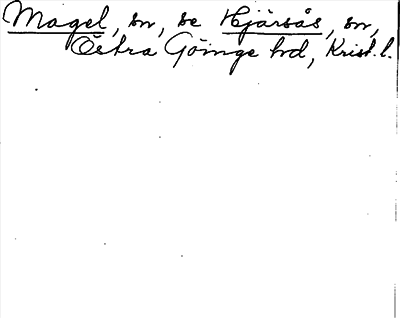 Magel, sn, se Hjärsås, sn,
Östra Göinge hd, Krist. l.